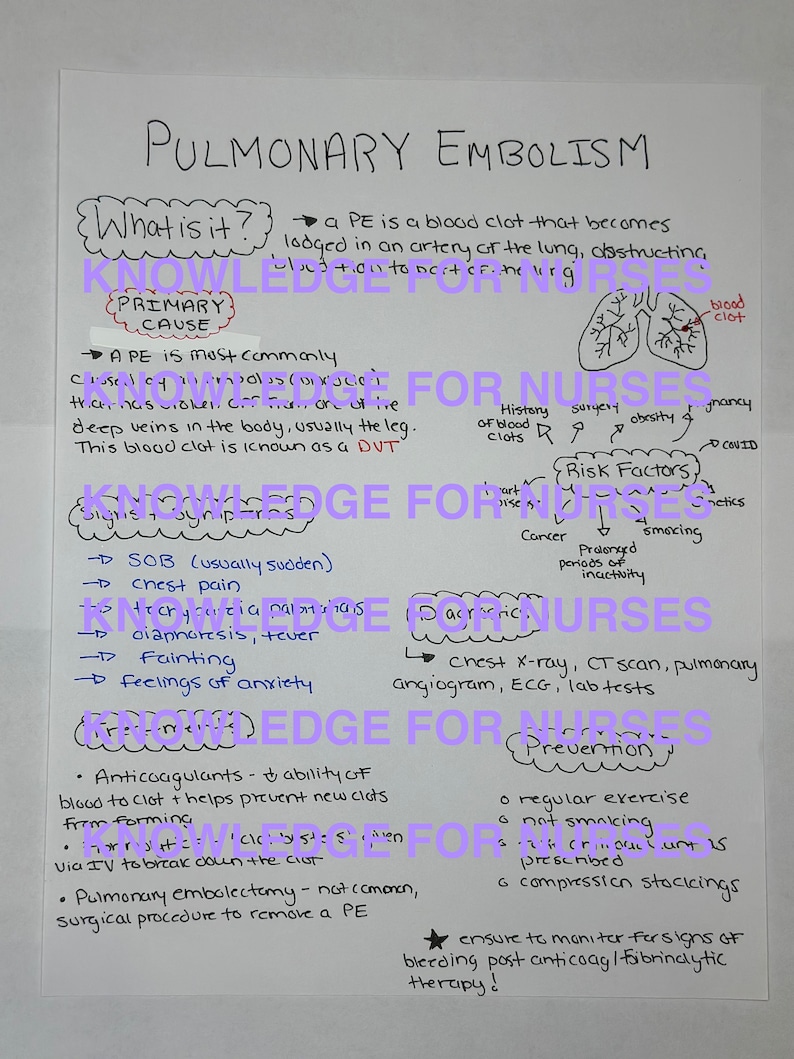 PULMONARY EMBOLISM
What is it?
→ a PE is a blood clot that becomes
lodged in an artery of the lung, obstructing
blood flow to part of the lung
KNOWLEDGE FOR NURSES
PRIMARY
CAUSE
blood
clot
→ A PE is most commonly
caused by an
KNOWLEDGE FOR NURSES
that has broken off from one of the
deep veins in the body, usually the leg.
This blood clot is known as a DVT
History
of blood
clots
surgery
obesity
COVID
Risk Factors
smoking
Prolonged
periods of
inactivity
Cancer
KNOWLEDGE FOR NURSES
Signs + Symptoms
→ SOB (usually sudden)
→ chest pain
→ tachycardia, palpitations
→ diaphoresis, fever
→ fainting
→ feelings of anxiety
KNOWLEDGE FOR NURSES
↳ chest x-ray, CT scan, pulmonary
angiogram, ECG, lab tests
KNOWLEDGE FOR NURSES
Treatments
• Anticoagulants - ↓ ability of
blood to clot + helps prevent new clots
from forming
given
via IV to break down the clot
• Pulmonary embolectomy - not common,
surgical procedure to remove a PE
Prevention
o regular exercise
o not smoking
KNOWLEDGE FOR NURSES
prescribed
o compression stockings
★ ensure to monitor for signs of
bleeding post anticoag/fibrinolytic
therapy!